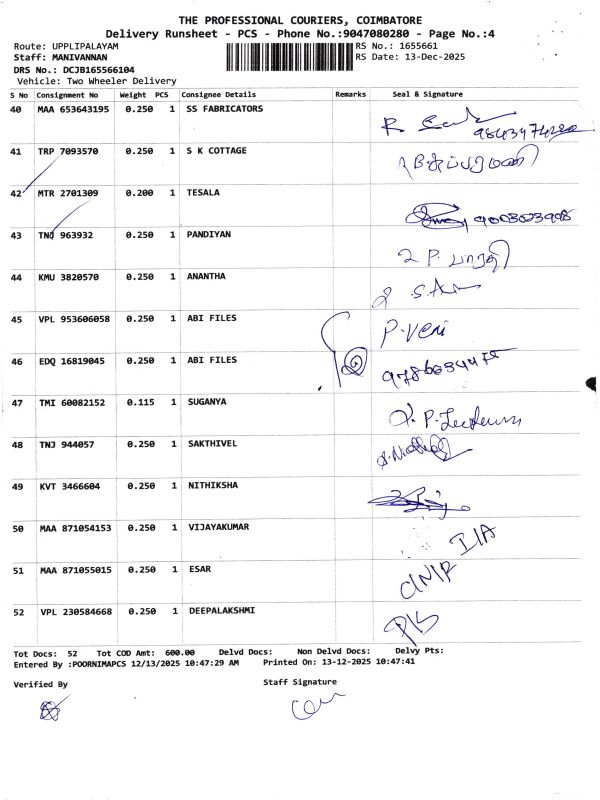 THE PROFESSIONAL COURIERS, COIMBATORE
Delivery Runsheet - PCS - Phone No.:9047080280 - Page No.:4
Route: UPPLIPALAYAM RS No.: 1655661
Staff: MANIVANNAN RS Date: 13-Dec-2025
DRS No.: DCJB165566104
Vehicle: Two Wheeler Delivery
S No Consignment No Weight PCS Consignee Details Remarks Seal & Signature
40 MAA 653643195 0.250 1 SS FABRICATORS
41 TRP 7093570 0.250 1 S K COTTAGE
42 MTR 2701309 0.200 1 TESALA
43 TNJ 963932 0.250 1 PANDIYAN
44 KMU 3820570 0.250 1 ANANTHA
45 VPL 953606058 0.250 1 ABI FILES P.Veni
46 EDQ 16819045 0.250 1 ABI FILES
47 TMI 60082152 0.115 1 SUGANYA
48 TNJ 944057 0.250 1 SAKTHIVEL
49 KVT 3466604 0.250 1 NITHIKSHA
50 MAA 871054153 0.250 1 VIJAYAKUMAR
51 MAA 871055015 0.250 1 ESAR
52 VPL 230584668 0.250 1 DEEPALAKSHMI
Tot Docs: 52 Tot COD Amt: 600.00 Delvd Docs: Non Delvd Docs: Delvy Pts:
Entered By :POORNIMAPCS 12/13/2025 10:47:29 AM Printed On: 13-12-2025 10:47:41
Verified By Staff Signature